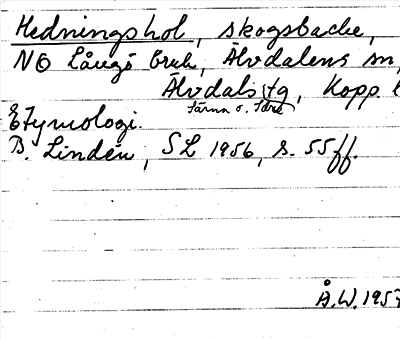 Hedningshol, skogsbacke,
NO Långö bruk, Älvdalens sn,
Älvdals tg, Kopp l
Särna o. Idre
Etymologi.
B. Lindén, SL 1956, s. 55 ff.
Å.W. 1957